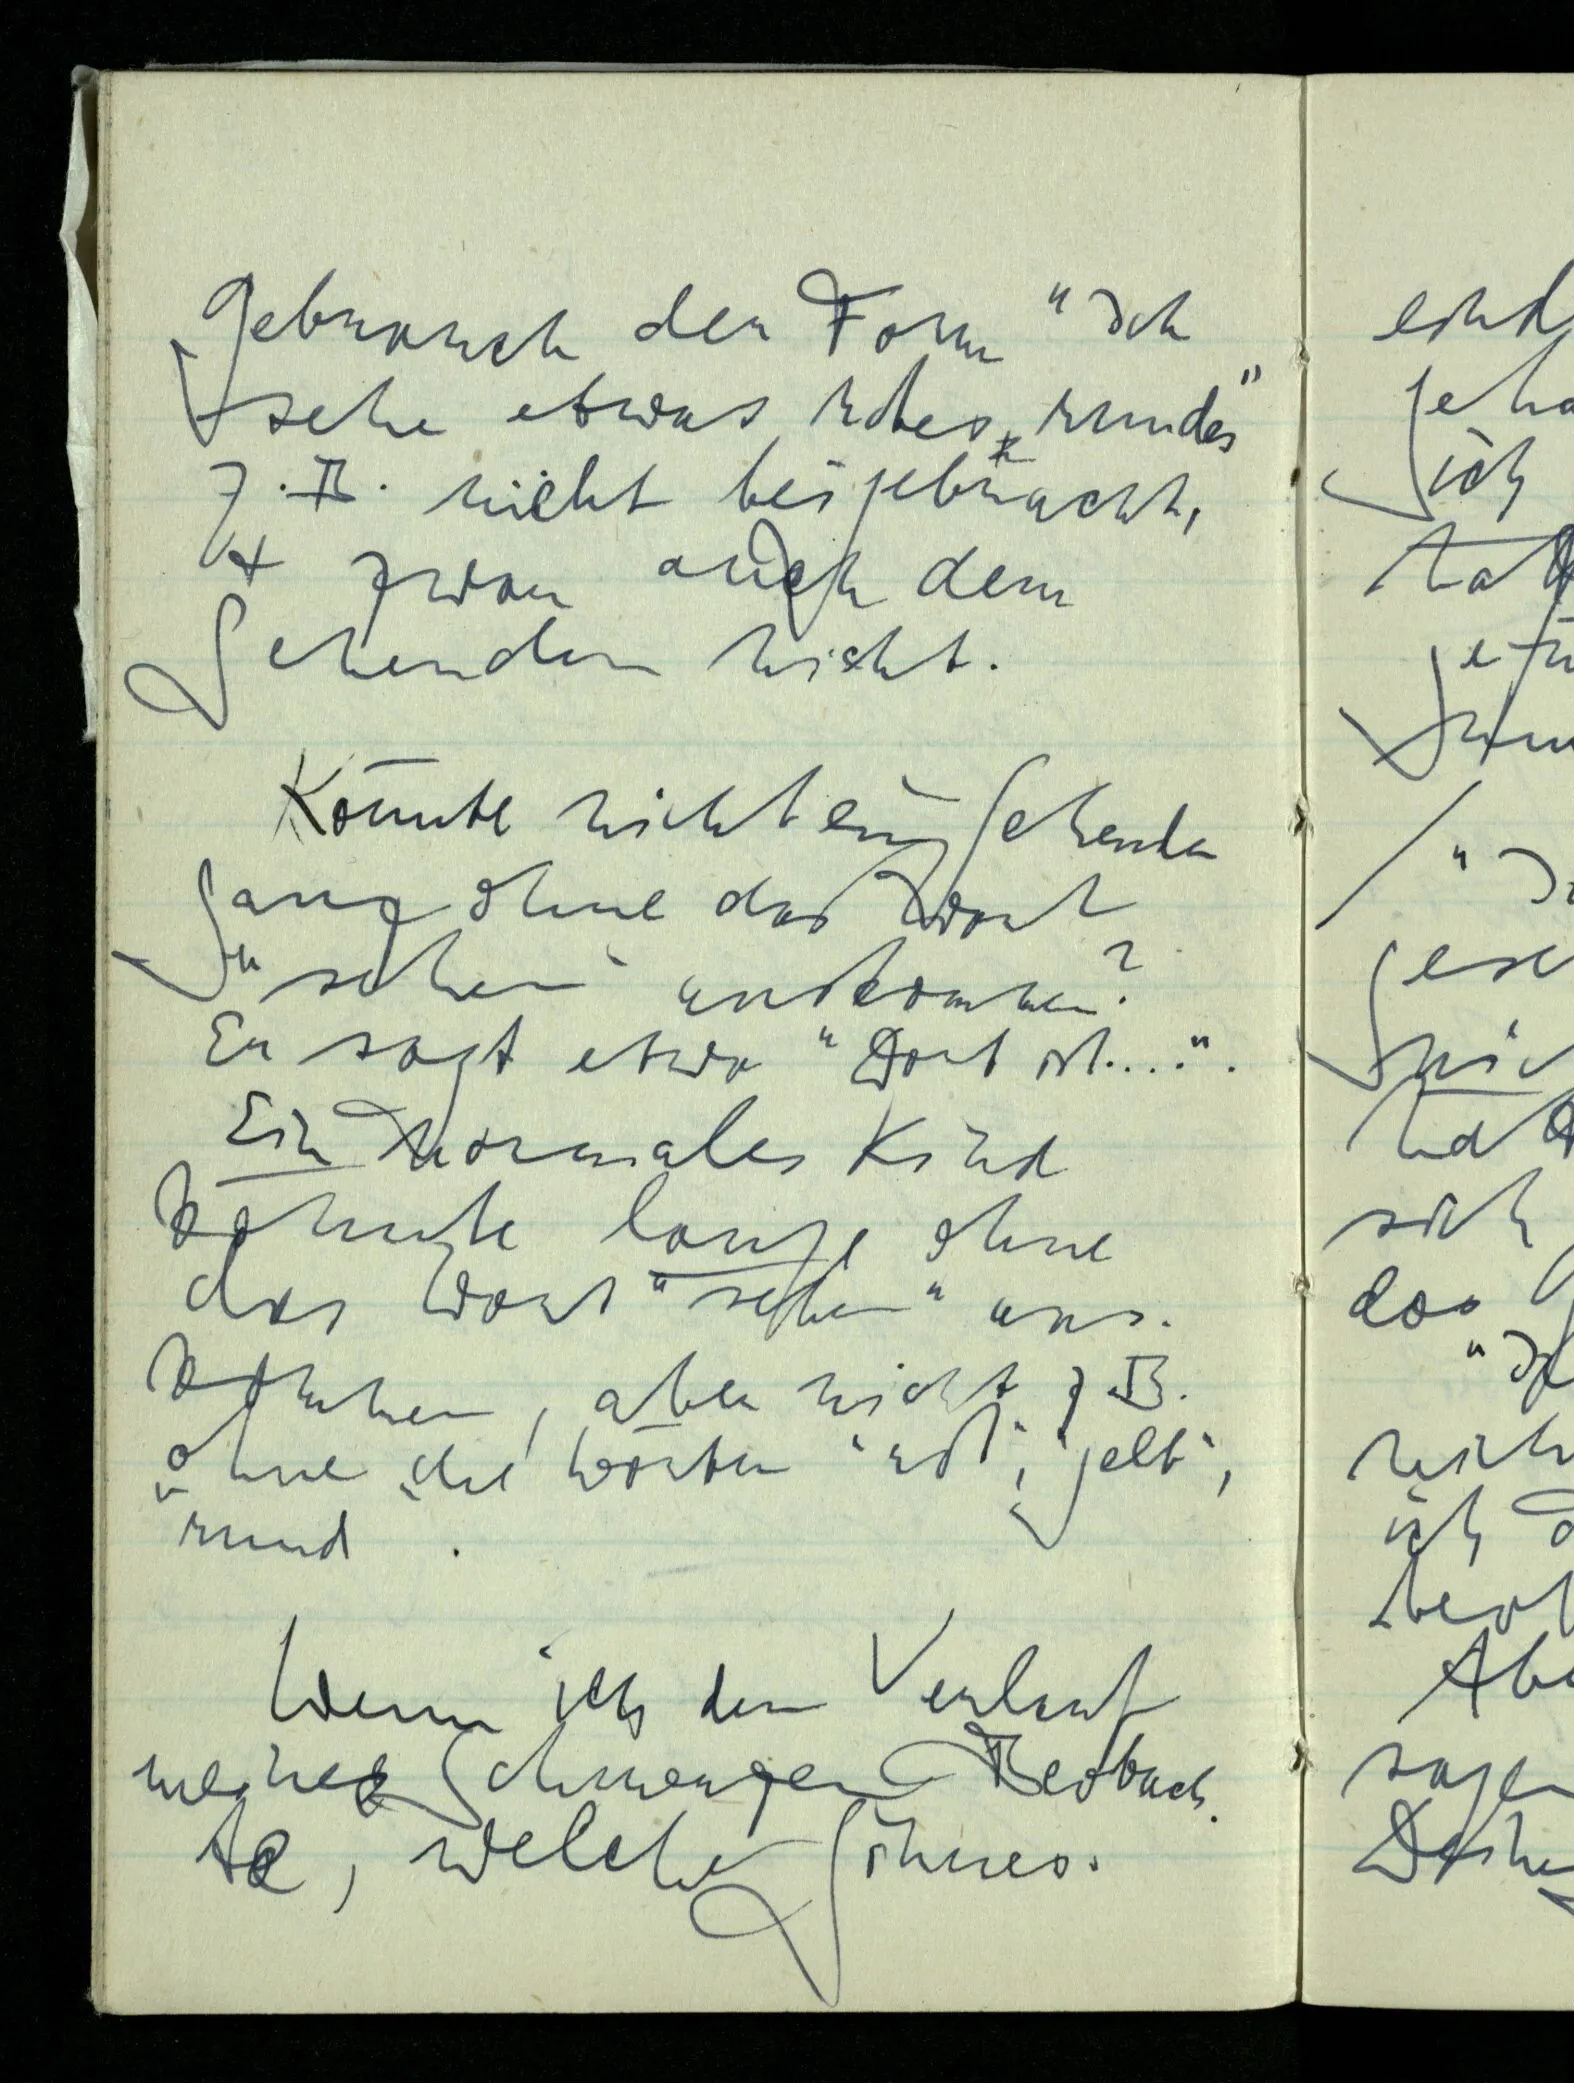 Gebrauch der Form "Ich
sehe etwas rotes, rundes"
z.B. nicht beigebracht,
& zwar auch dem
Sehenden nicht.
Könnte nicht ein Sehender
ganz ohne das Wort
"sehen" auskommen?
Er sagt etwa "Dort ist....".
Ein normales Kind
könnte lange ohne
das Wort "sehen" aus-
kommen, aber nicht z.B.
ohne die Wörter "rot", "gelb",
"rund".
Wenn ich den Verlauf
meiner Schmerzen beobach-
te, welcher Sinnes-
eind
geha
ich
hät
gefü
"I
gese
nic
hät
sich
das
"I
nich
ich d
beob
Abe
sagen